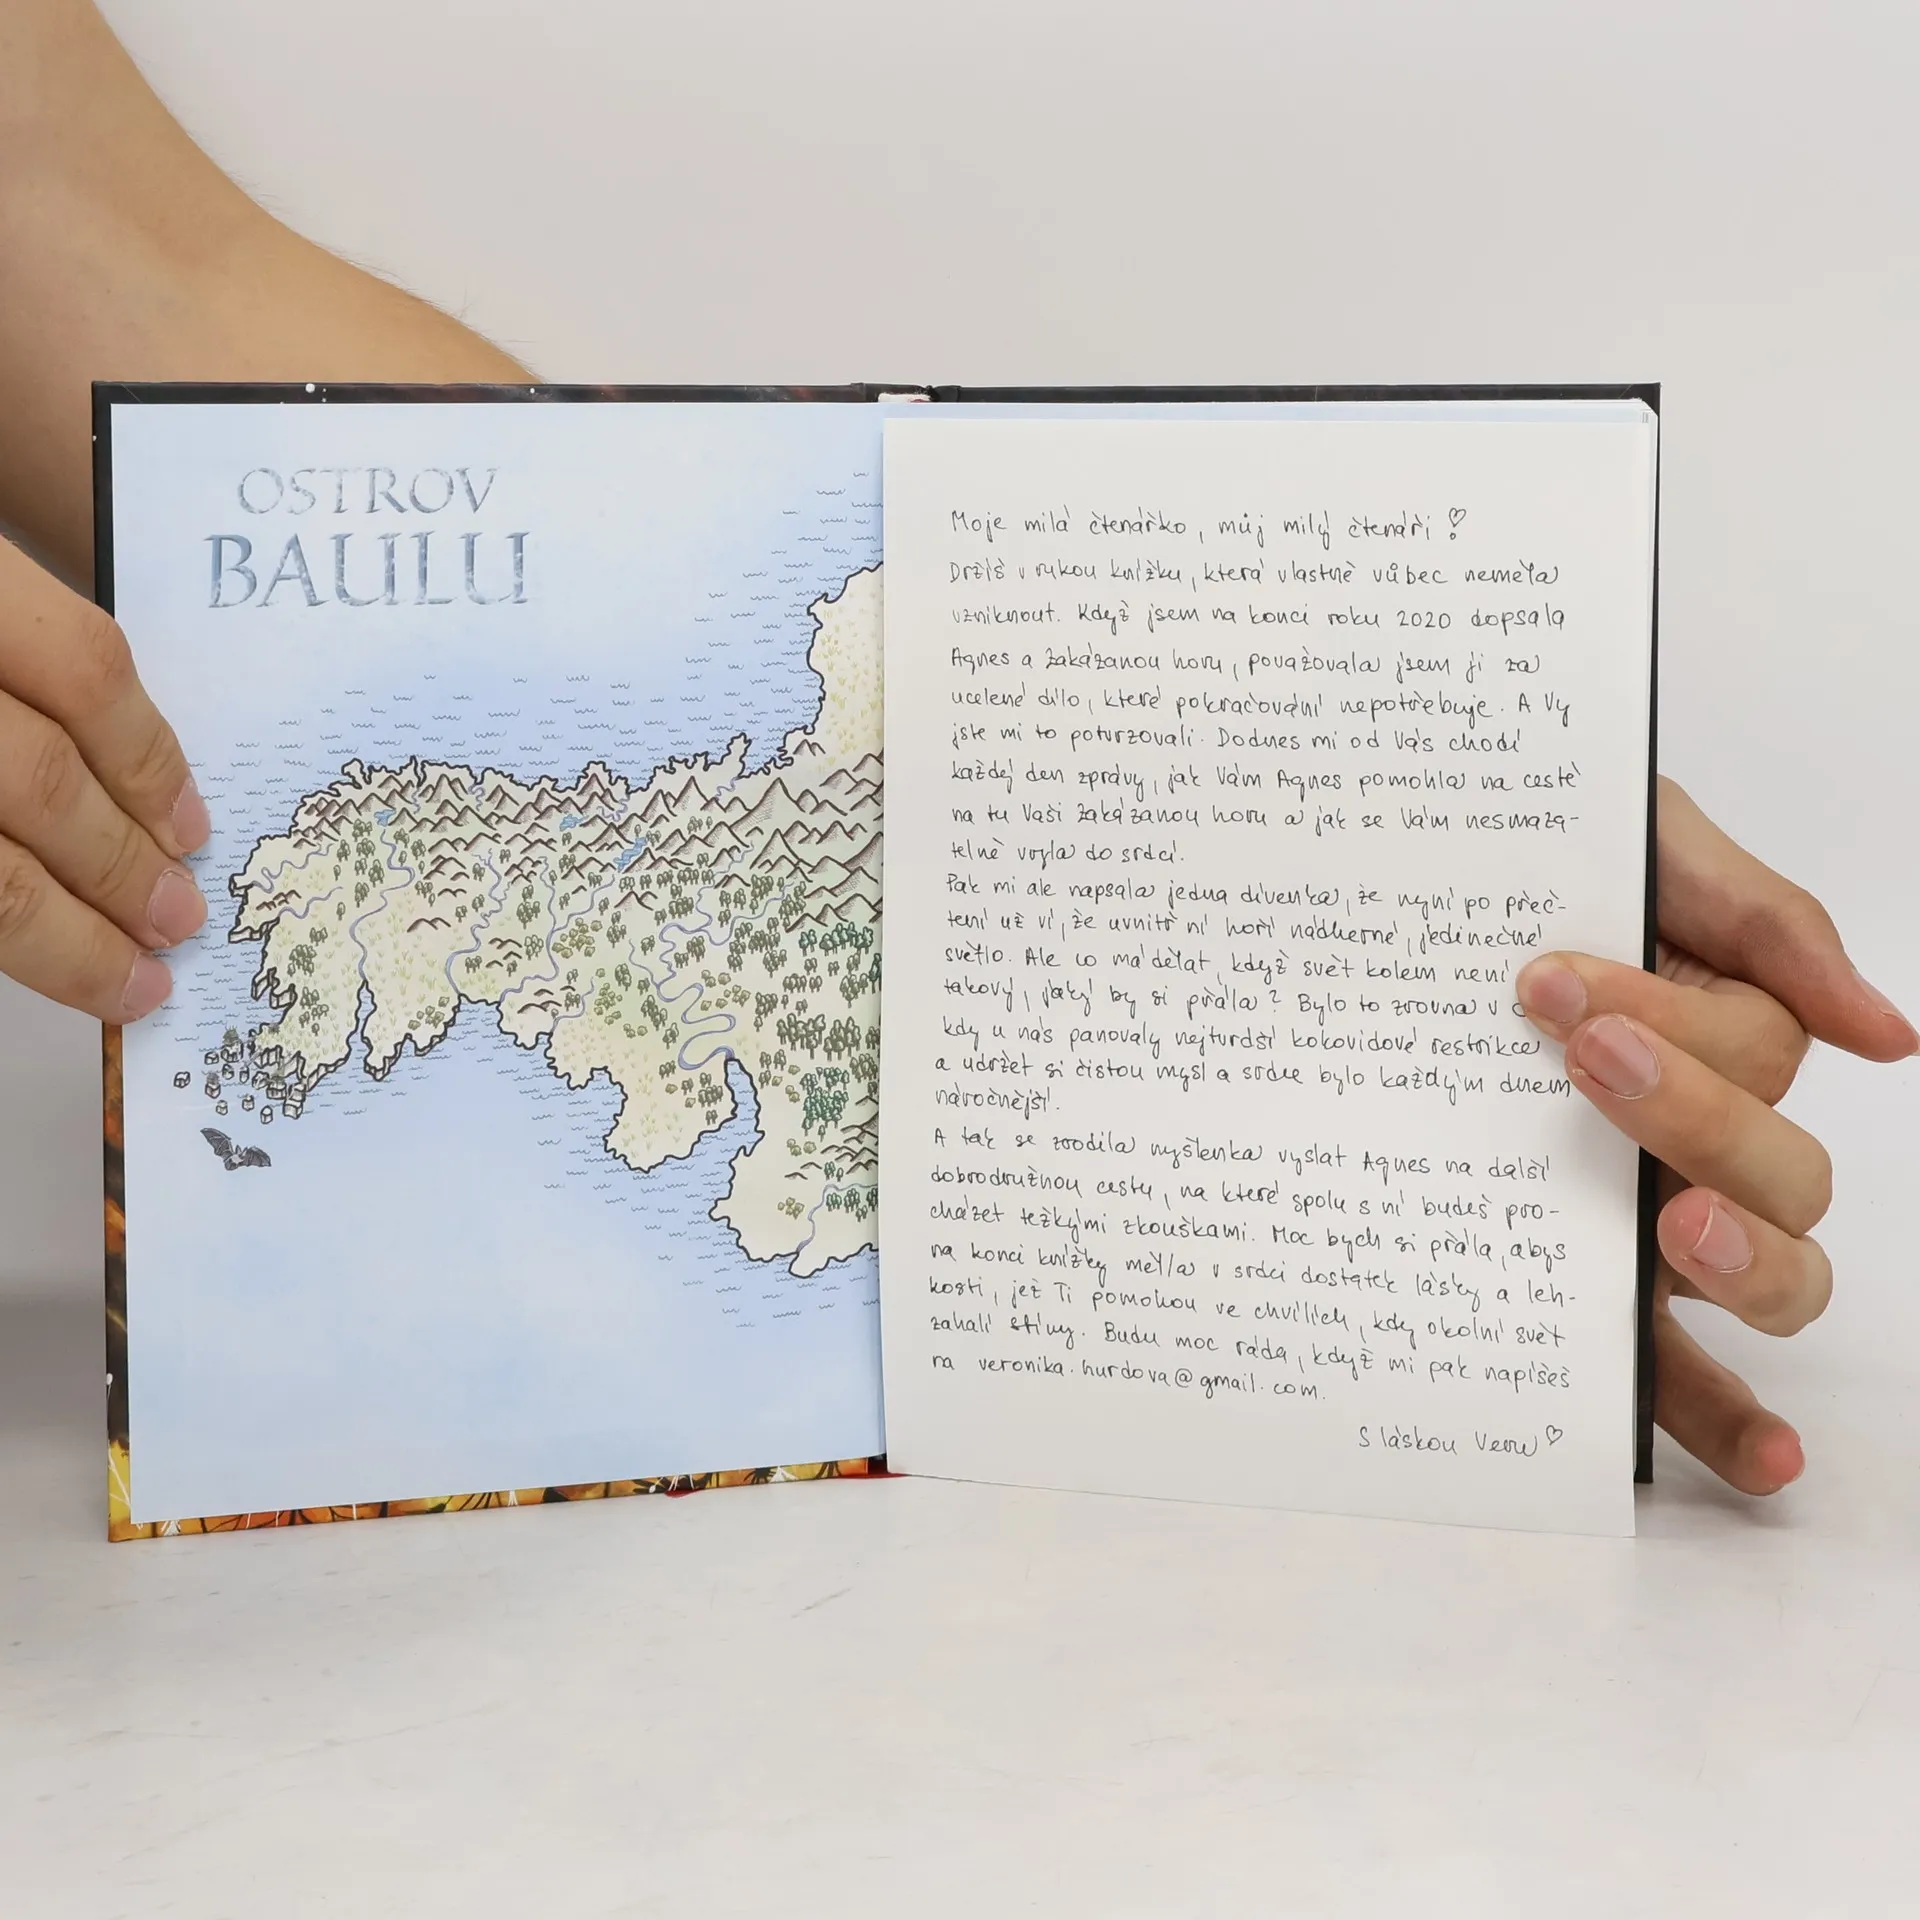 OSTROV
BAULU
Moje milá čtenářko, můj milý čtenáři!
Držíš v rukou knížku, která vlastně vůbec neměla
vzniknout. Když jsem na konci roku 2020 dopsala
Agnes a Zakázanou horu, považovala jsem ji za
ucelené dílo, které pokračování nepotřebuje. A Vy
jste mi to potvrzovali. Dodnes mi od Vás chodí
každý den zprávy, jak Vám Agnes pomohla na cestě
na tu Vaši Zakázanou horu a jak se Vám nesmaza-
telně vryla do srdcí.
Pak mi ale napsala jedna dívenka, že nyní po přeč-
tení už ví, že uvnitř ní hoří nádherné, jedinečné
světlo. Ale co má dělat, když svět kolem není
takový, jaký by si přála? Bylo to zrovna v
kdy u nás panovaly nejtvrdší kokovidové restrikce
a udržet si čistou mysl a srdce bylo každým dnem
náročnější.
A tak se zrodila myšlenka vyslat Agnes na další
dobrodružnou cestu, na které spolu s ní budeš pro-
cházet těžkými zkouškami. Moc bych si přála, abys
na konci knížky měl/a v srdci dostatek lásky a leh-
kosti, jež Ti pomohou ve chvílích, kdy okolní svět
zahalí stíny. Budu moc ráda, když mi pak napíšeš
na veronika.hurdova@gmail.com.
S láskou Veru